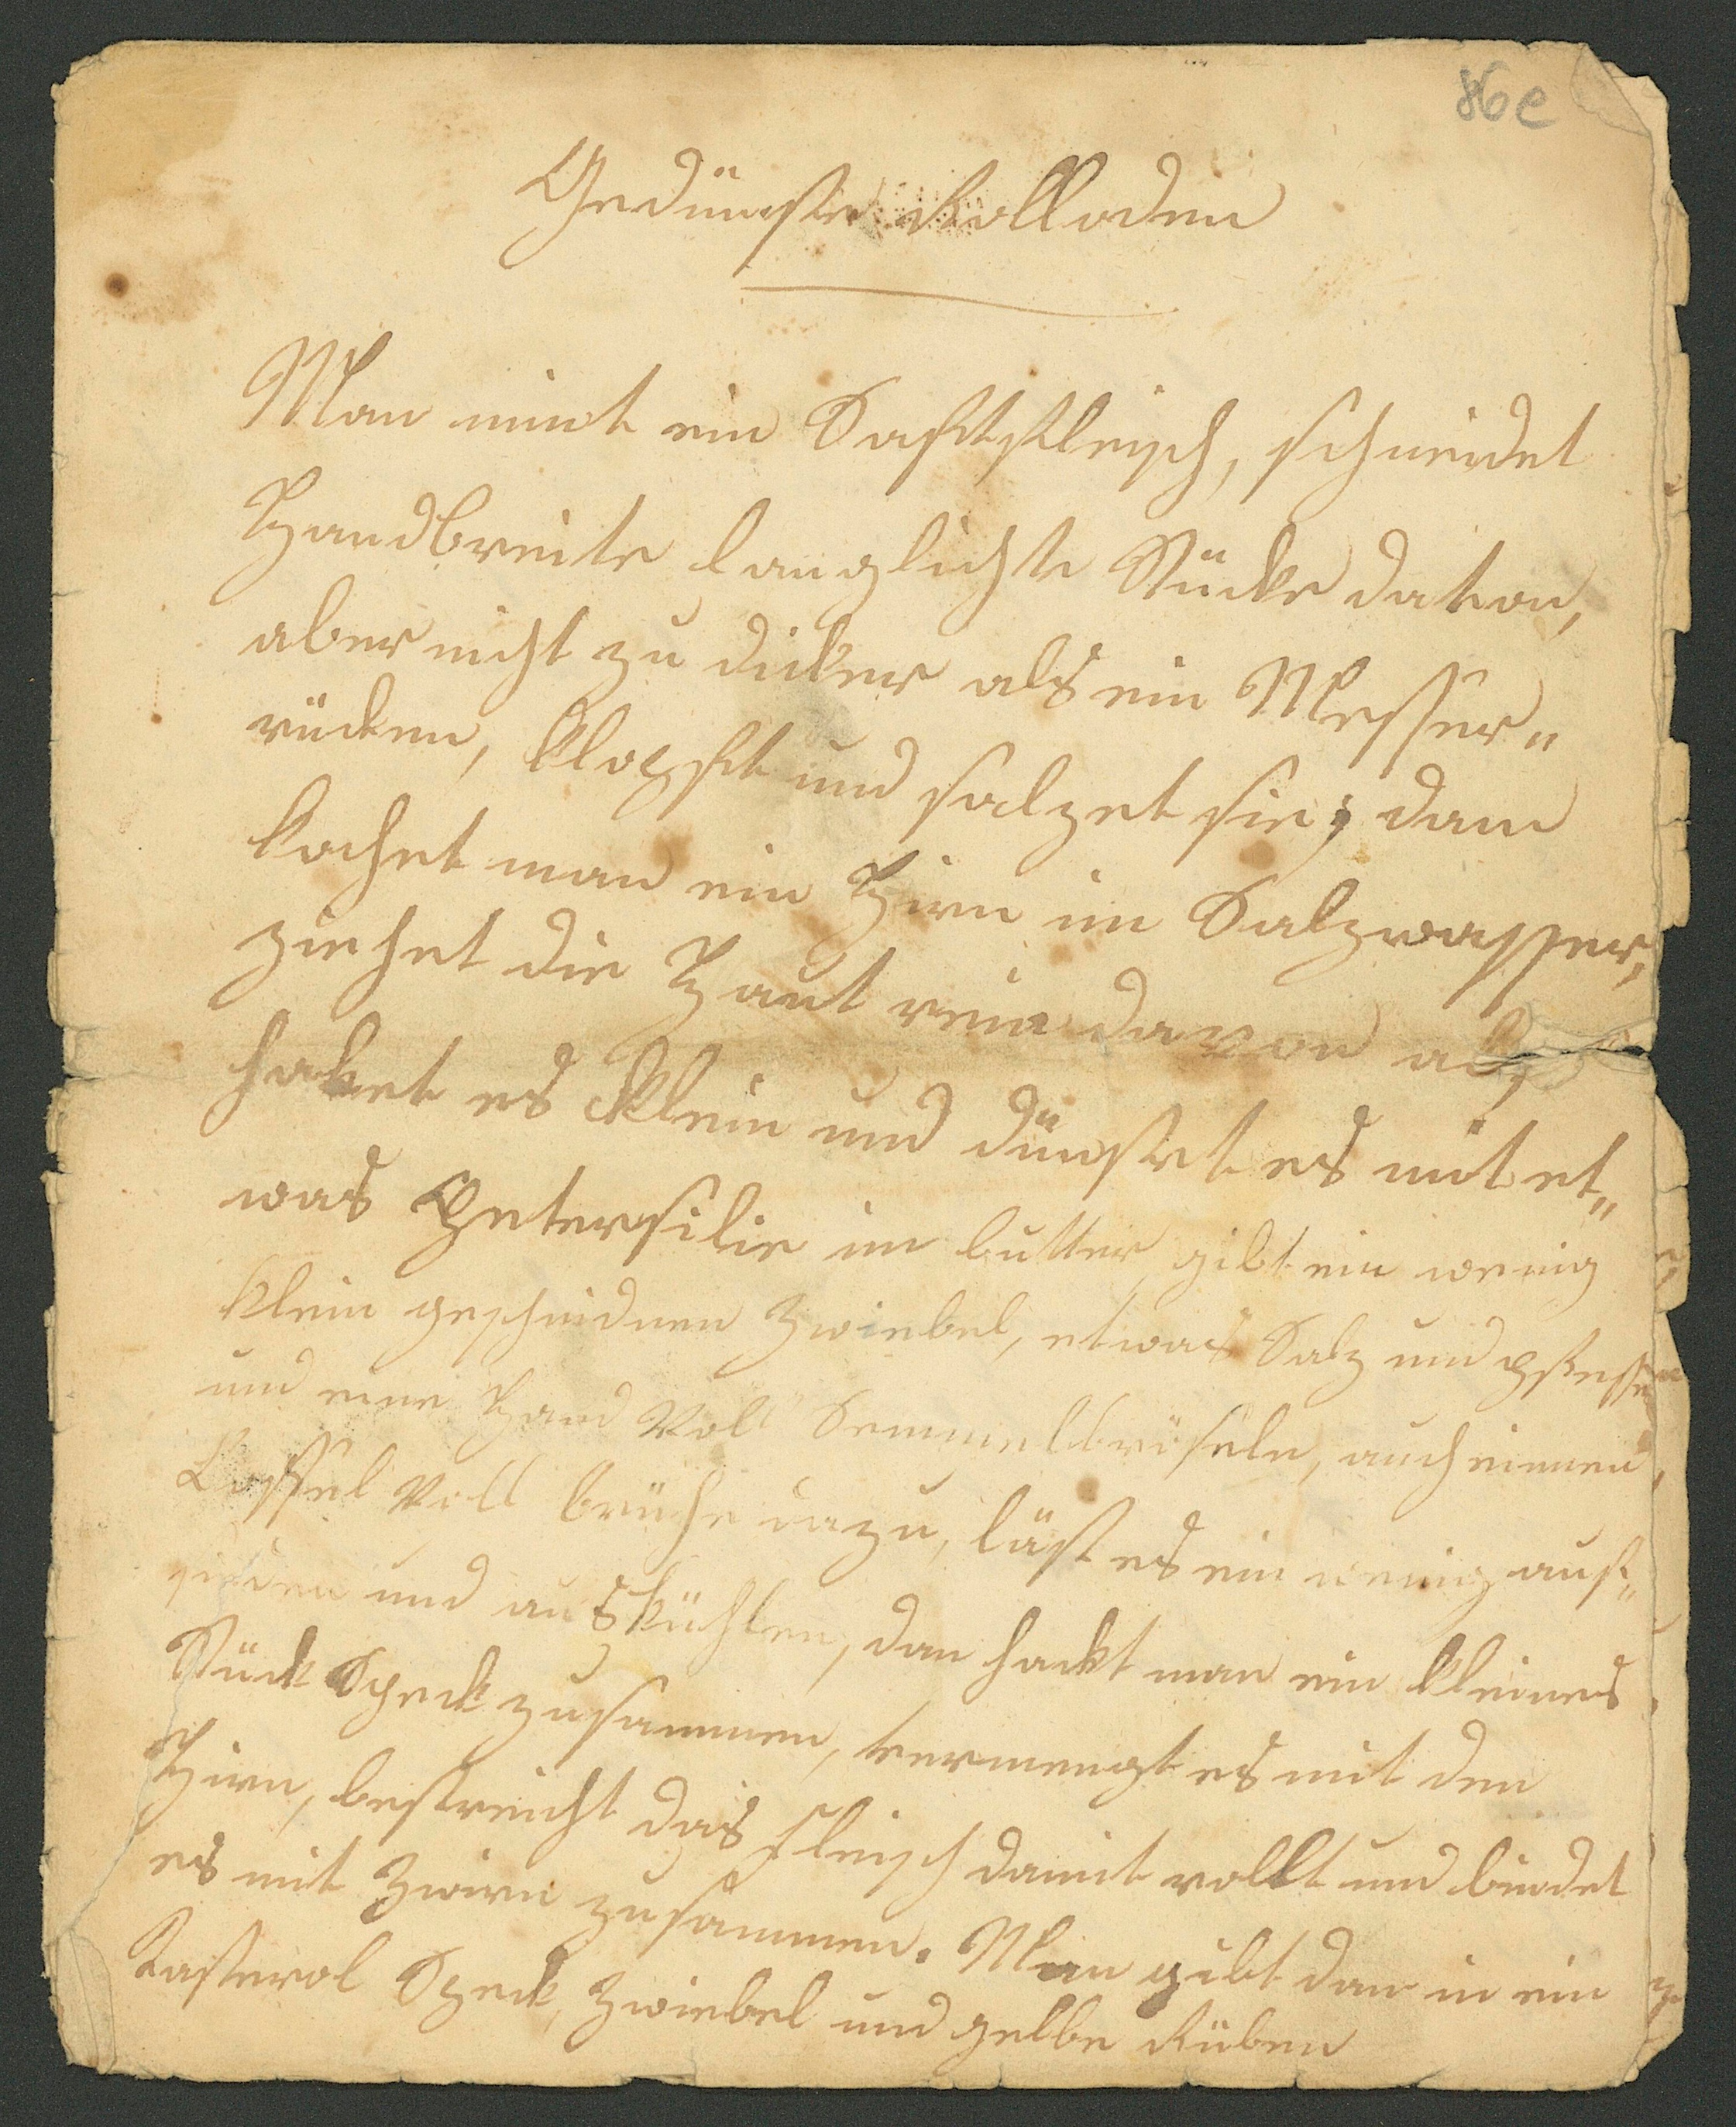 86e
Gedünste Rolladen
Man nimt ein Saftfleisch, schneidet
Handbreite langlichte Stücke davon,
aber nicht zu dicker als ein Messer„
rücken, klopft und salzet sie; dann
kochet man ein Hirn im Salzwasser,
ziehet die Haut rein davon ab,
haket es klein und dünstet es mit et„
was Petersilie im butter, gibt ein wenig
klein geschnidnen Zwiebel, etwas Salz und Pfeffer
und eine Hand voll Semmelbröseln, auch einnen
Löffel voll brühe dazu, läst es ein wenig auf„
sieden und auskühlen, dan hackt man ein kleines
Stück Speck zusammen, vermengt es mit den
Hirn, bestreicht das Fleisch damit rollt und bindet
es mit Zwirn zusammen. Man gibt dan in ein
Kasterol Speck, Zwiebel und gelbe Rüben